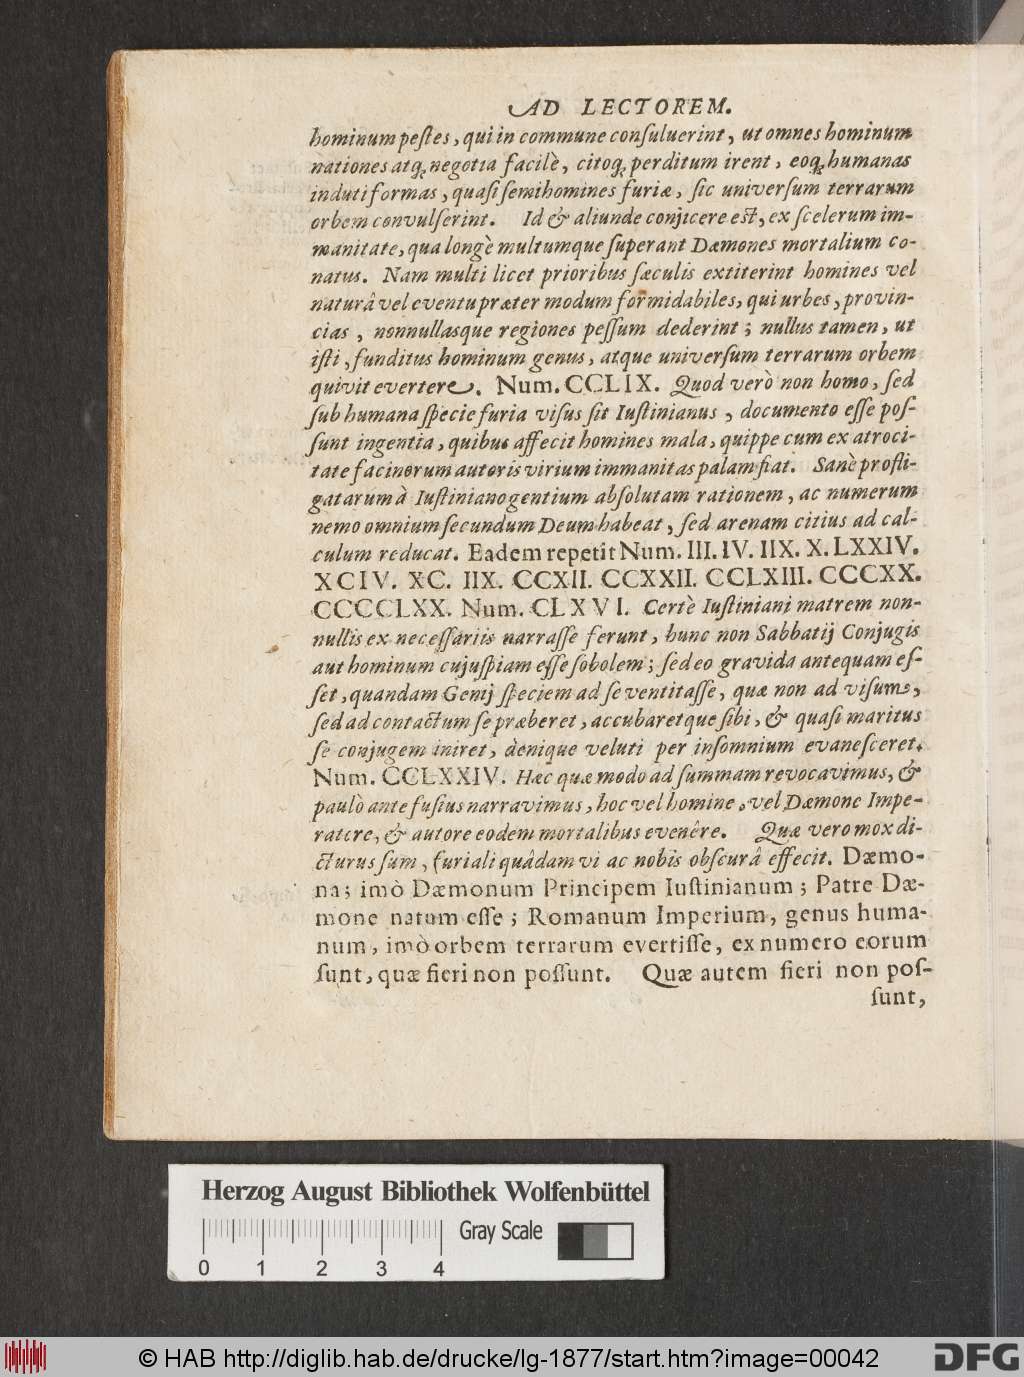 AD LECTOREM.
hominum peſtes, qui in commune conſuluerint, ut omnes hominum
nationes atq́; negotia facilè, citoq́; perditum irent, eoq́; humanas
induti formas, quaſi ſemihomines furiæ, ſic univerſum terrarum
orbem convulſerint. Id & aliunde conjicere eſt, ex ſcelerum im-
manitate, qua longè multumque ſuperant Dæmones mortalium co-
natus. Nam multi licet prioribus ſæculis extiterint homines vel
naturâ vel eventu præter modum formidabiles, qui urbes, provin-
cias, nonnullasque regiones peſſum dederint; nullus tamen, ut
iſti, funditus hominum genus, atque univerſum terrarum orbem
quivit evertere. Num. CCLIX. Quod verò non homo, ſed
ſub humana ſpecie furia viſus ſit Iuſtinianus, documento eſſe poſ-
ſunt ingentia, quibus affecit homines mala, quippe cum ex atroci-
tate facinorum autoris virium immanitas palam fiat. Sanè profli-
gatarum à Iuſtiniano gentium abſolutam rationem, ac numerum
nemo omnium ſecundum Deum habeat, ſed arenam citius ad cal-
culum reducat. Eadem repetit Num. III. IV. IIX. X. LXXIV.
XCIV. XC. IIX. CCXII. CCXXII. CCLXIII. CCCXX.
CCCCLXX. Num. CLXVI. Certè Iuſtiniani matrem non-
nullis ex neceſſariis narraſſe ferunt, hunc non Sabbatij Conjugis
aut hominum cujuſpiam eſſe ſobolem; ſed eo gravida antequam eſ-
ſet, quandam Genij ſpeciem ad ſe ventitaſſe, quæ non ad viſum,
ſed ad contactum ſe præberet, accubaretque ſibi, & quaſi maritus
ſe conjugem iniret, dènique veluti per inſomnium evaneſceret.
Num. CCLXXIV. Hæc quæ modo ad ſummam revocavimus, &
paulò ante fuſius narravimus, hoc vel homine, vel Dæmone Impe-
ratore, & autore eodem mortalibus evenêre. Quæ vero mox di-
cturus ſum, furiali quâdam vi ac nobis obſcurâ effecit. Dæmo-
na; imò Dæmonum Principem Iuſtinianum; Patre Dæ-
mone natum eſſe; Romanum Imperium, genus huma-
num, imò orbem terrarum evertiſſe, ex numero eorum
ſunt, quæ fieri non poſſunt. Quæ autem fieri non poſ-
ſunt,
Herzog August Bibliothek Wolfenbüttel
Gray Scale
0 1 2 3 4
© HAB http://diglib.hab.de/drucke/lg-1877/start.htm?image=00042
DFG